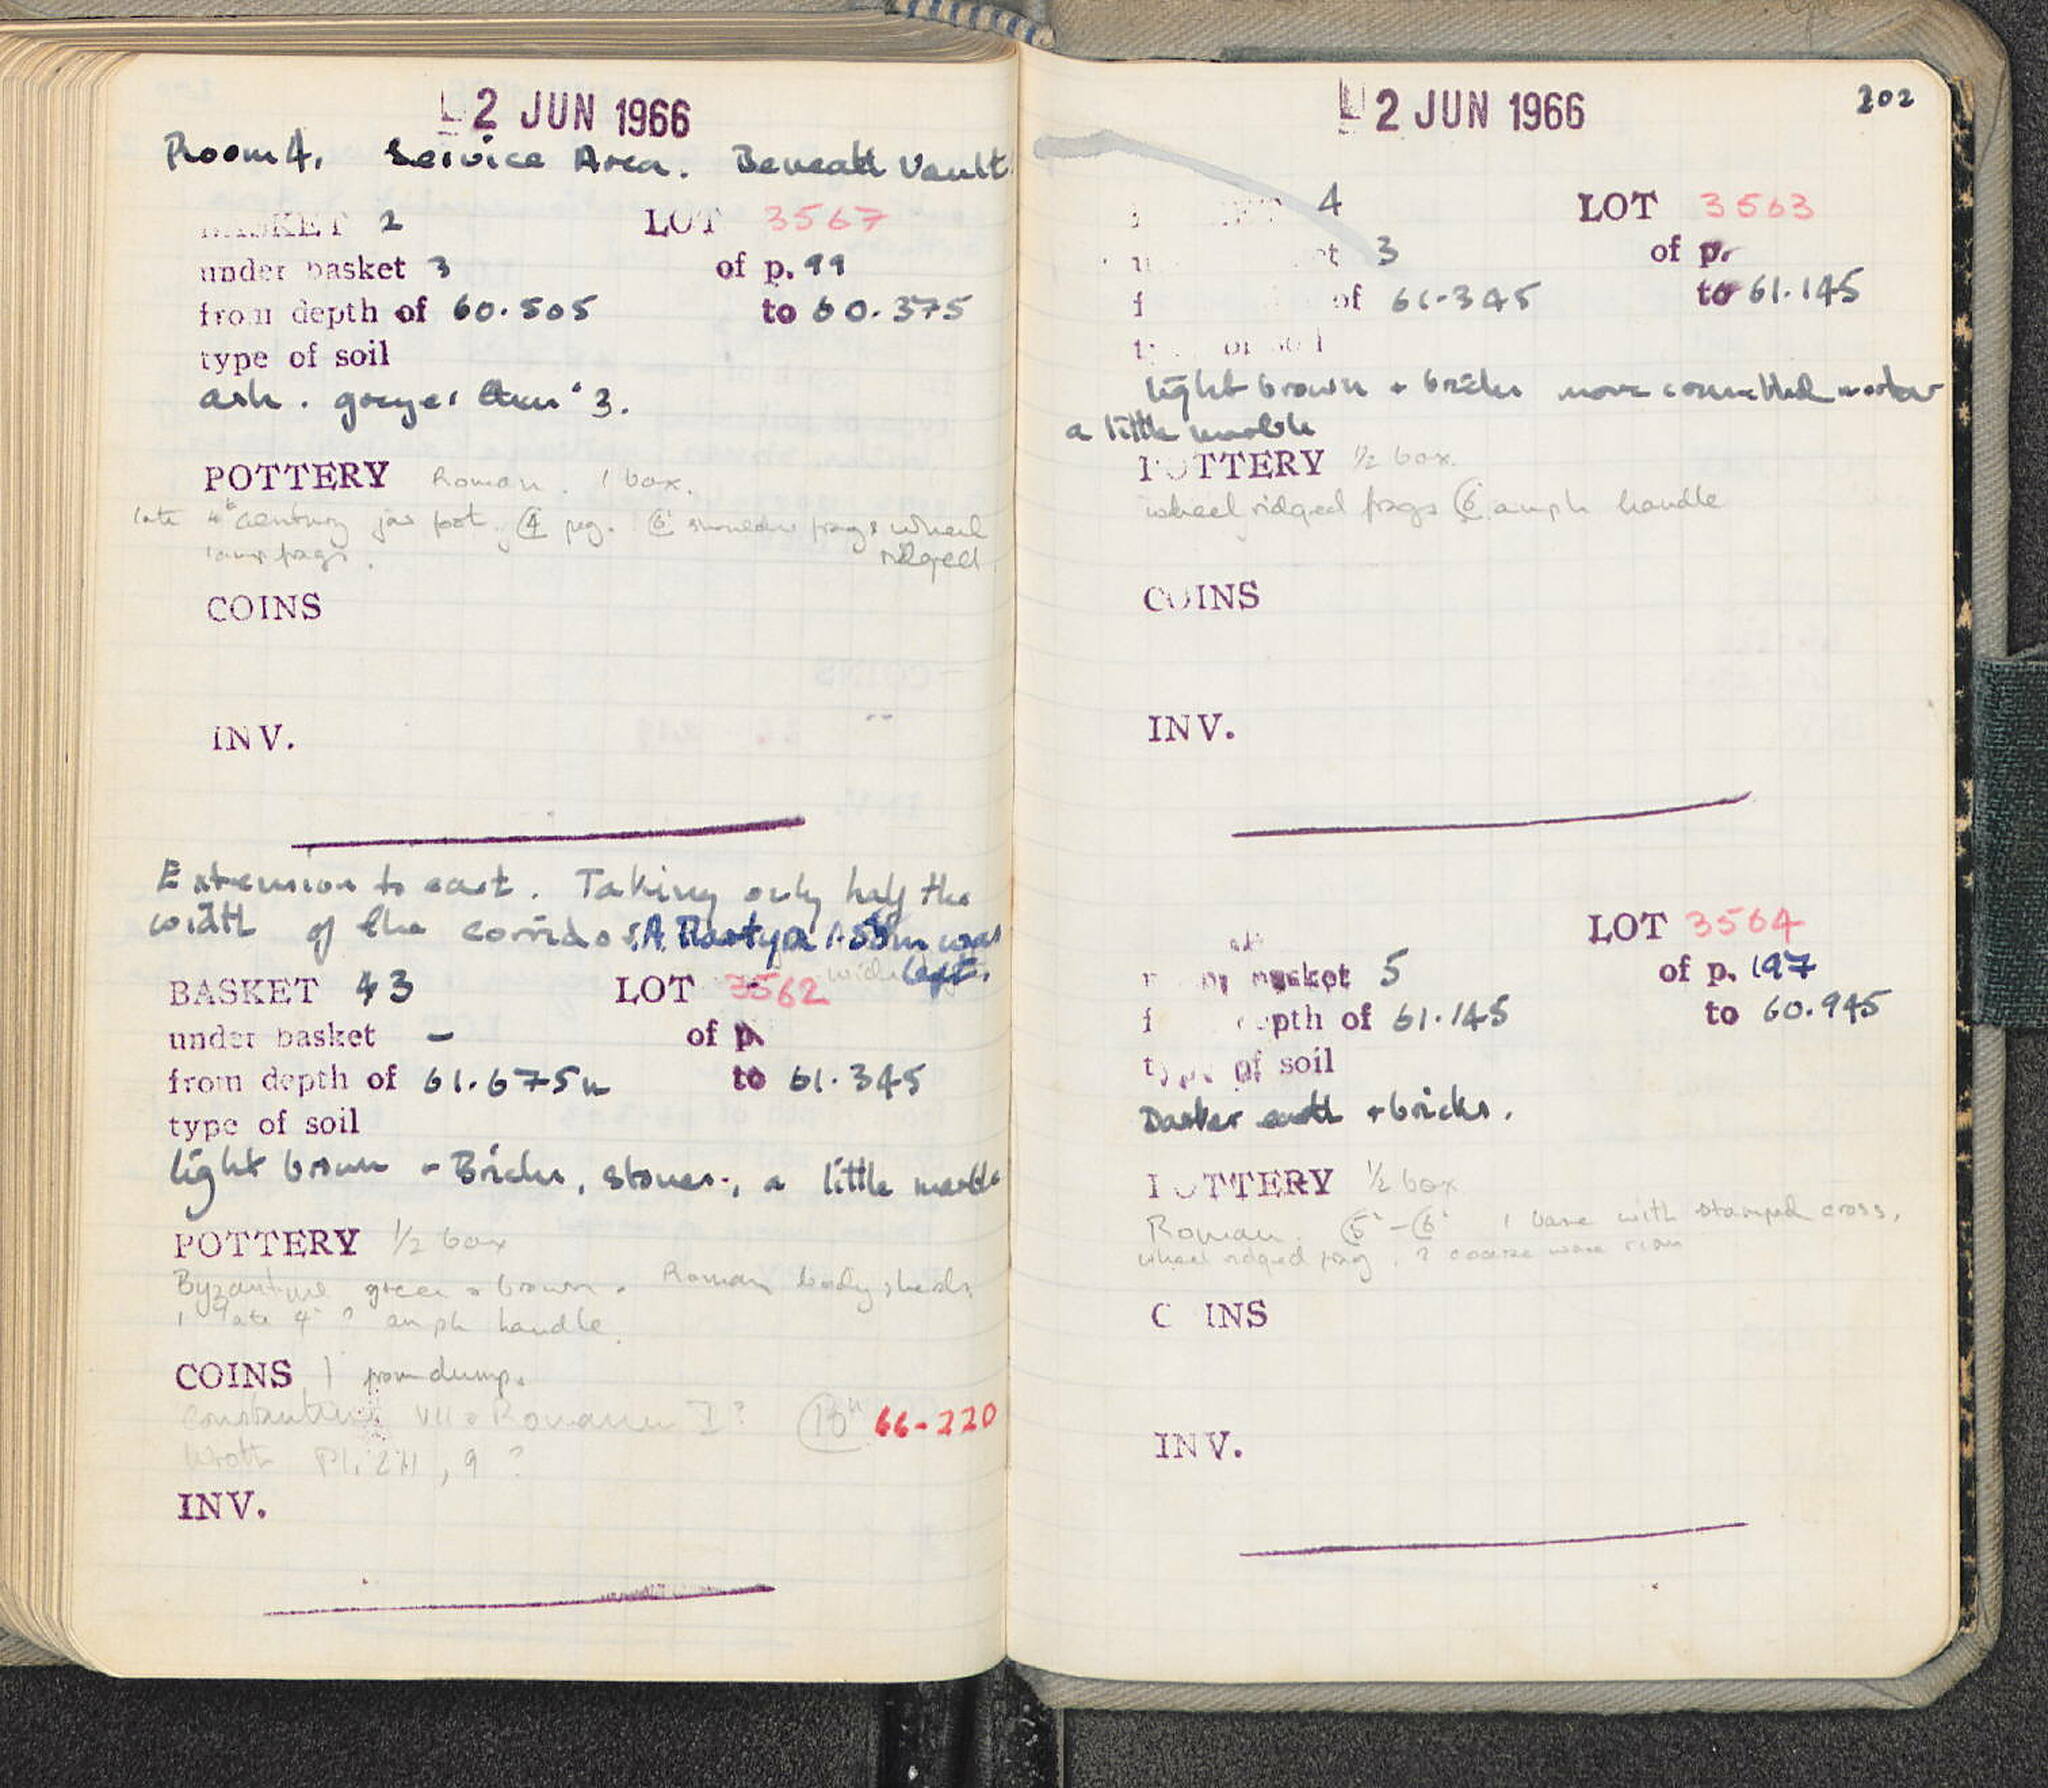 2 JUN 1966
Room 4. Service Area. Beneath Vault.
BASKET 2 LOT 3567
under basket 3 of p. 99
from depth of 60.505 to 60.375
type of soil
ash. greyer than 3.
POTTERY Roman. 1 box.
late 4th century jar foot. 4 frag. 6 shoulder frags wheel
ridged
lamp frags.
COINS
INV.
Extension to east. Taking only half the
width of the corridor. was
left.
BASKET 3 LOT 3562
under basket - of p.
from depth of 61.675m to 61.345
type of soil
light brown + Bricks, stones, a little marble
POTTERY 1/2 box
Byzantine green & brown. Roman body sherds
1 late 4 ? amph handle.
COINS 1 from dump.
Constantine VII & Romanus I? 10th 66-220
Wroth Pl. , 9 ?
INV.
2 JUN 1966
202
4 LOT 3563
3 of p.
of 61.345 to 61.145
type of soil
light brown + bricks more mortar
a little marble
POTTERY 1/2 box.
wheel ridged frags 6 amph handle
COINS
INV.
LOT 3564
under basket 5 of p. 197
from depth of 61.145 to 60.945
type of soil
Darker earth + bricks.
POTTERY 1/2 box
Roman. 5-6 1 base with stamped cross,
wheel ridged frag, ? coarse ware rim
COINS
INV.